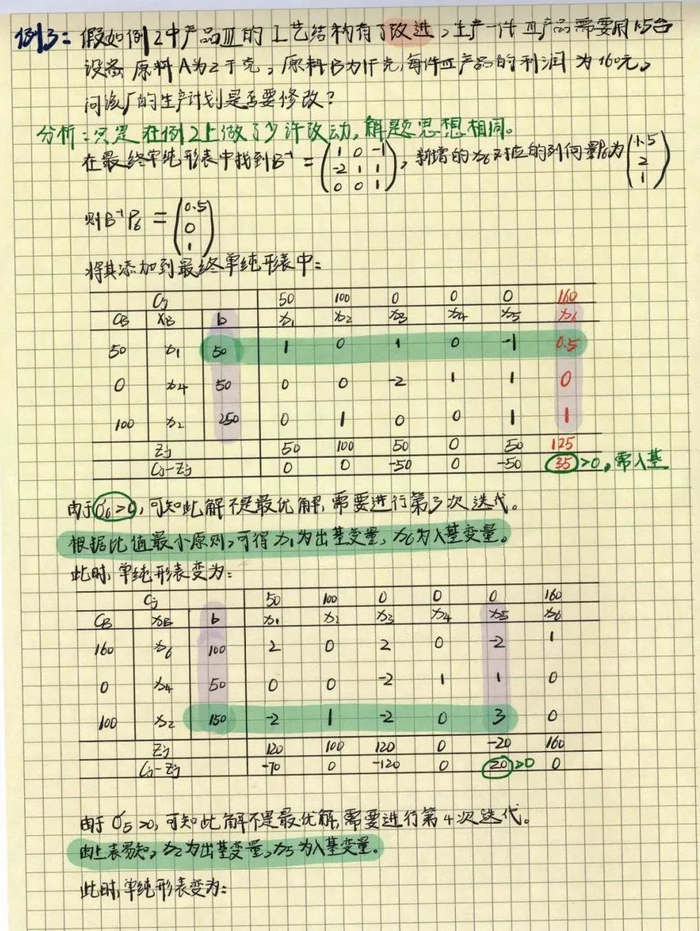 例3：假如例2中产品Ⅲ的工艺结构有了改进，生产一件Ⅲ产品需要用1.5台
设备，原料A为2千克，原料B为1千克，每件Ⅲ产品的利润为160元，
问该厂的生产计划是否要修改？
分析：只是在例2上做了少许改动，解题思想相同。
在最终单纯形表中找到B⁻¹ = (1 0 -1; -2 1 1; 0 0 1)，新增的x₆对应的列向量P₆为(1.5; 2; 1)
则B⁻¹P₆ = (0.5; 0; 1)
将其添加到最终单纯形表中：
Cj 50 100 0 0 0 160
CB XB b x₁ x₂ x₃ x₄ x₅ x₆
50 x₁ 50 1 0 1 0 -1 0.5
0 x₄ 50 0 0 -2 1 1 0
100 x₂ 250 0 1 0 0 1 1
Zj 50 100 50 0 50 125
Cj-Zj 0 0 -50 0 -50 35>0，需入基
由于σ₆>0，可知此解不是最优解，需要进行第3次迭代。
根据比值最小原则，可得x₁为出基变量，x₆为入基变量。
此时，单纯形表变为：
Cj 50 100 0 0 0 160
CB XB b x₁ x₂ x₃ x₄ x₅ x₆
160 x₆ 100 2 0 2 0 -2 1
0 x₄ 50 0 0 -2 1 1 0
100 x₂ 150 -2 1 -2 0 3 0
Zj 120 100 120 0 -20 160
Cj-Zj -70 0 -120 0 20>0 0
由于σ₅>0，可知此解不是最优解，需要进行第4次迭代。
由上表易知，x₂为出基变量，x₅为入基变量。
此时，单纯形表变为：